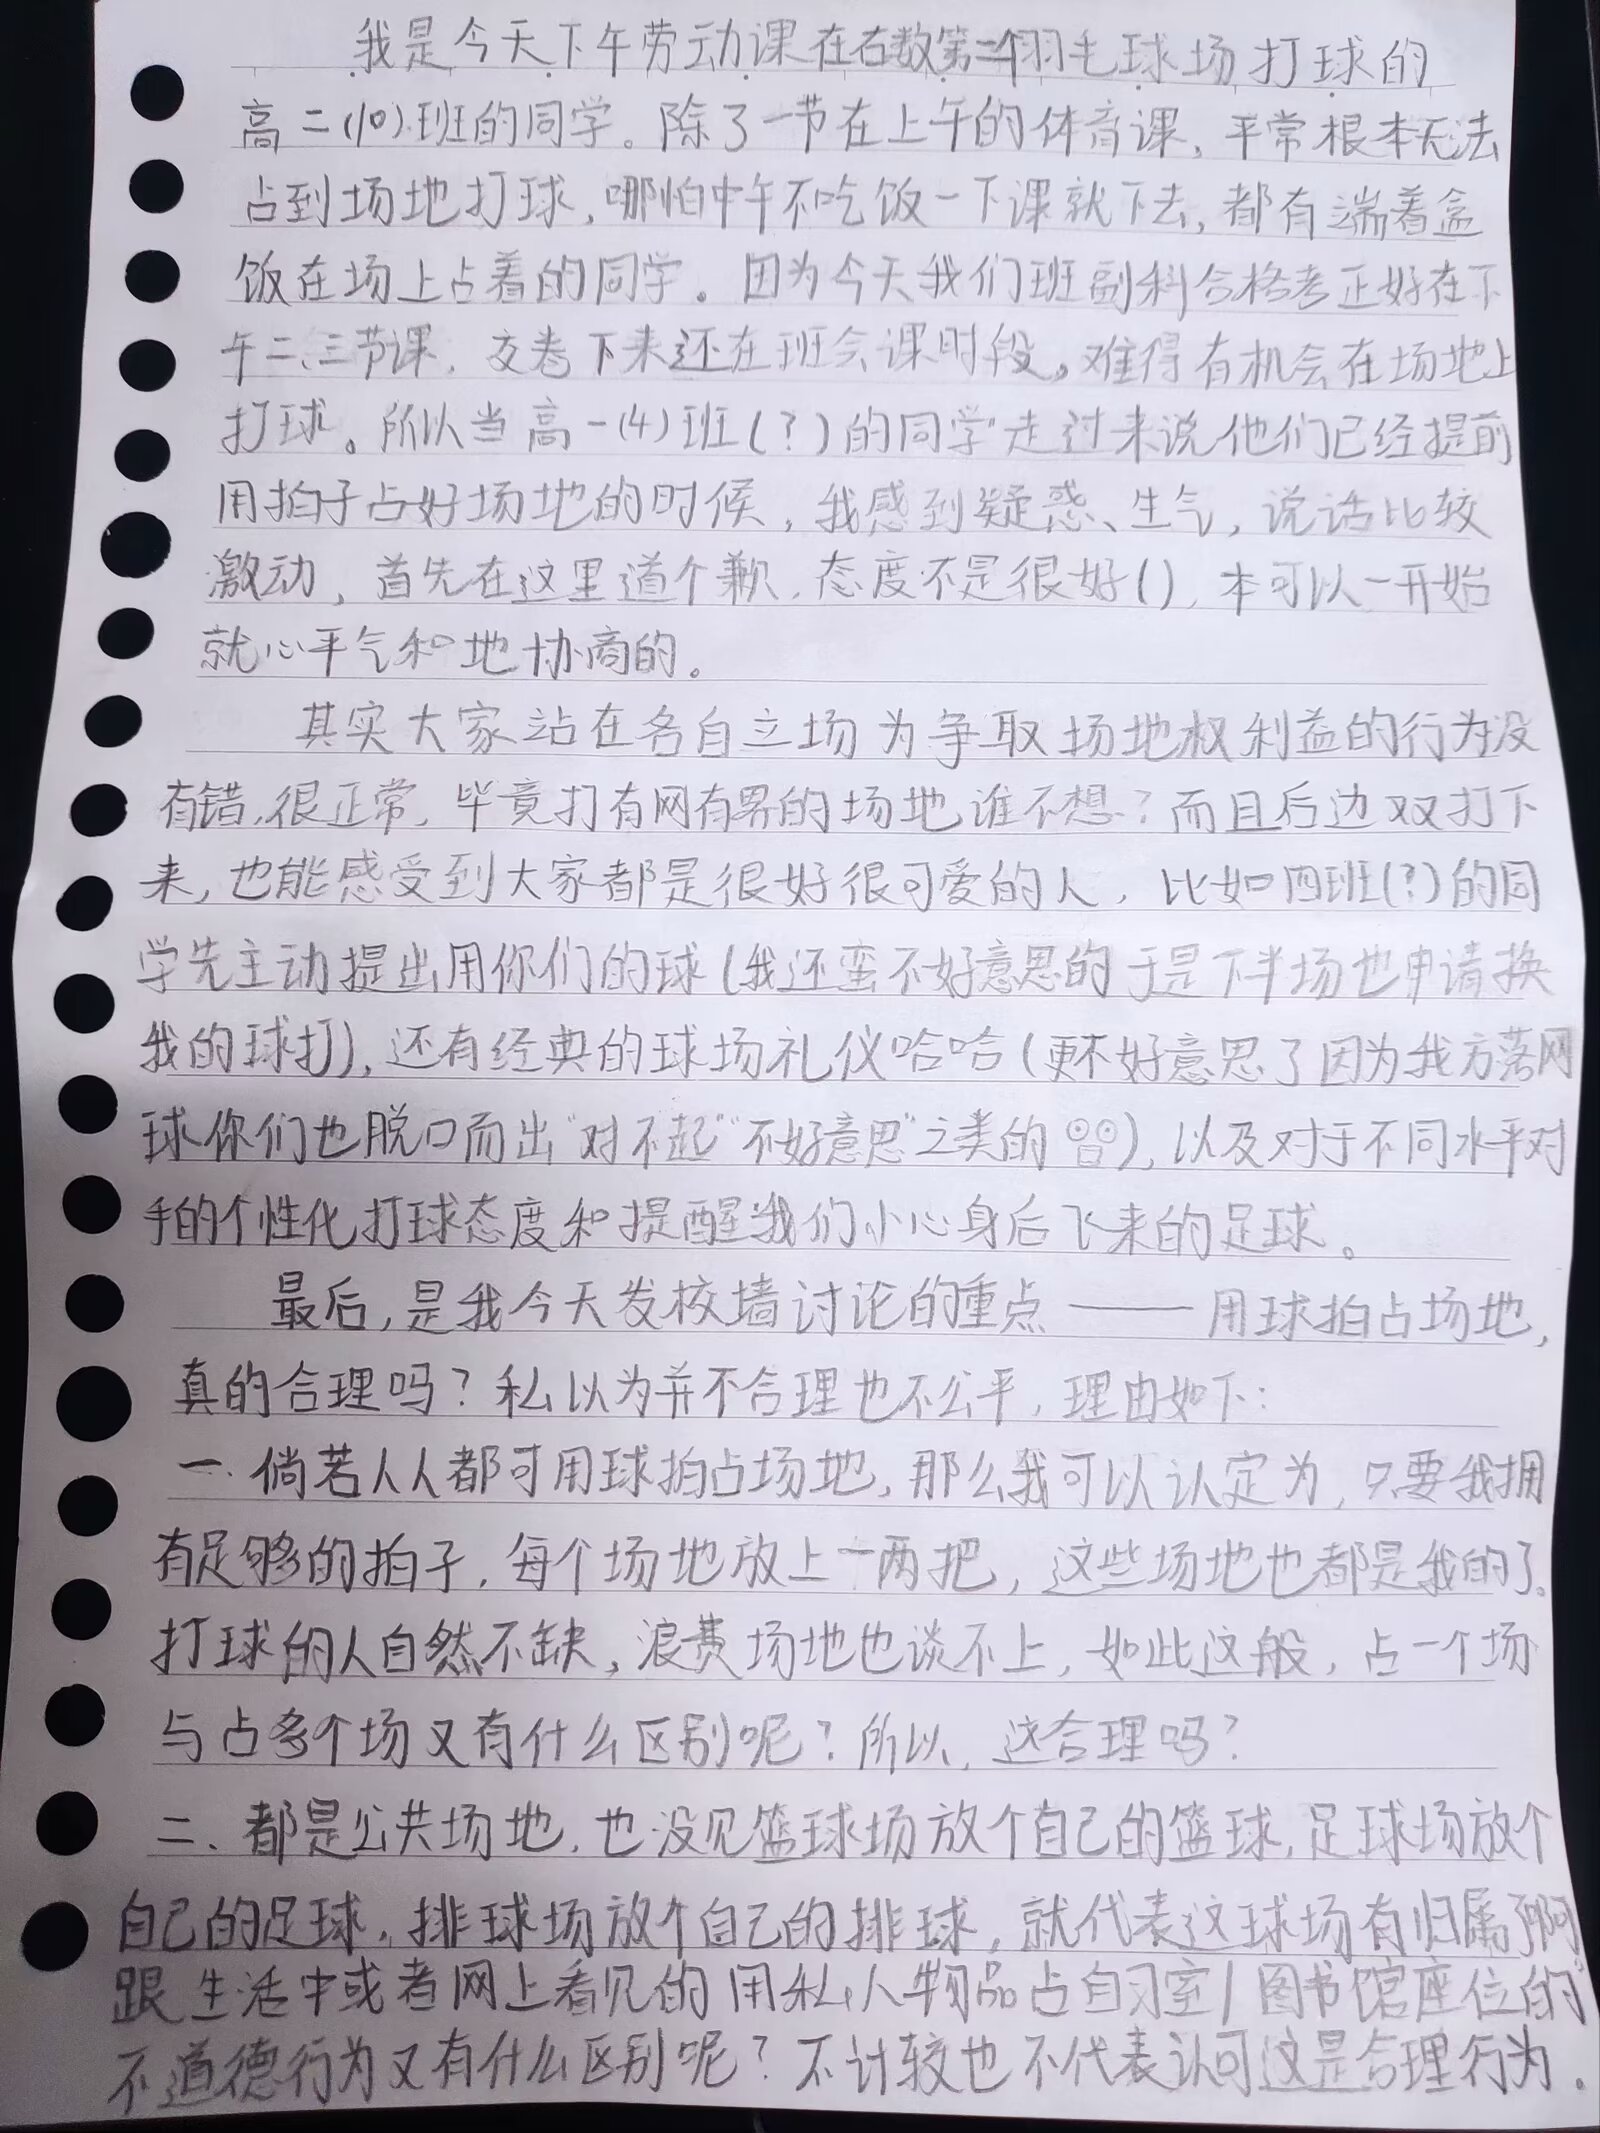 我是今天下午劳动课在右数第二个羽毛球场打球的
高二(10)班的同学。除了一节在上午的体育课,平常根本无法
占到场地打球,哪怕中午不吃饭一下课就下去,都有端着盒
饭在场上占着的同学。因为今天我们班副科合格考正好在下
午二、三节课,交卷下来还在班会课时段。难得有机会在场地上
打球。所以当高一(4)班(?)的同学走过来说他们已经提前
用拍子占好场地的时候,我感到疑惑、生气,说话比较
激动,首先在这里道个歉,态度不是很好(),本可以一开始
就心平气和地协商的。
其实大家站在各自立场为争取场地权利益的行为没
有错,很正常,毕竟打有网有界的场地谁不想?而且后边双打下
来,也能感受到大家都是很好很可爱的人,比如四班(?)的同
学先主动提出用你们的球(我还蛮不好意思的于是下半场也申请换
我的球打),还有经典的球场礼仪哈哈(更不好意思了因为我方落网
球你们也脱口而出“对不起”“不好意思”之类的),以及对于不同水平对
手的个性化打球态度和提醒我们小心身后飞来的足球。
最后,是我今天发校墙讨论的重点——用球拍占场地,
真的合理吗?私以为并不合理也不公平,理由如下:
一.倘若人人都可用球拍占场地,那么我可以认定为,只要我拥
有足够的拍子,每个场地放上一两把,这些场地也都是我的了。
打球的人自然不缺,浪费场地也谈不上,如此这般,占一个场
与占多个场又有什么区别呢?所以,这合理吗?
二.都是公共场地,也没见篮球场放个自己的篮球,足球场放个
自己的足球,排球场放个自己的排球,就代表这球场有归属了啊
跟生活中或者网上看见的用私人物品占自习室/图书馆座位的
不道德行为又有什么区别呢?不计较也不代表认可这是合理行为。